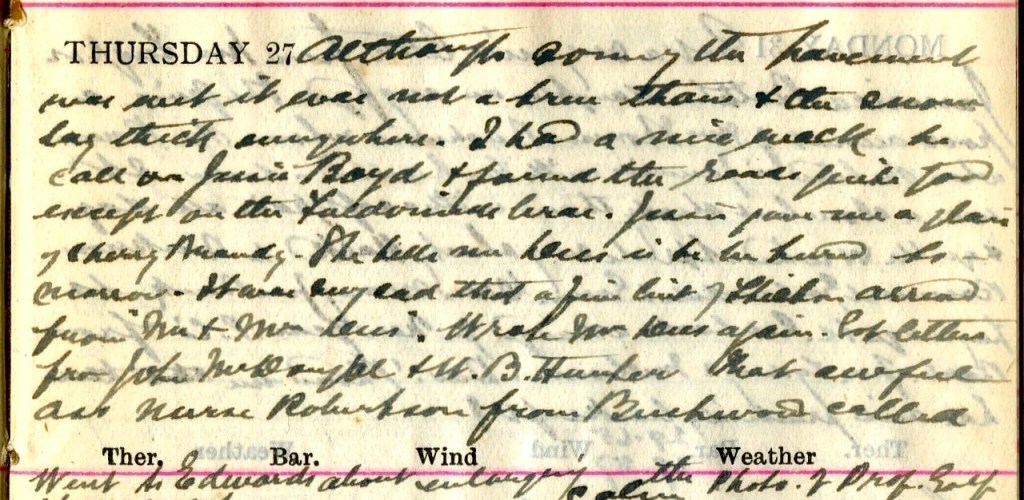 THURSDAY 27 Although sunny the pavement
was wet it was not a true thaw & the snow
lay thick everywhere. I had a nice walk to
call on Jessie Boyd & found the roads quite good
except on the brae. Jessie gave me a glass
of Cherry Brandy. She tells me is to be buried to-
morrow. It was very sad that a fine bird of arrived
from Mr & Mrs Wrote Mrs again. Got letters
from John McDougall & W. B. Hunter That awful
ass Nurse Robertson from called
Ther. Bar. Wind Weather
Went to Edwards about enlarging the Photo. of Prof.